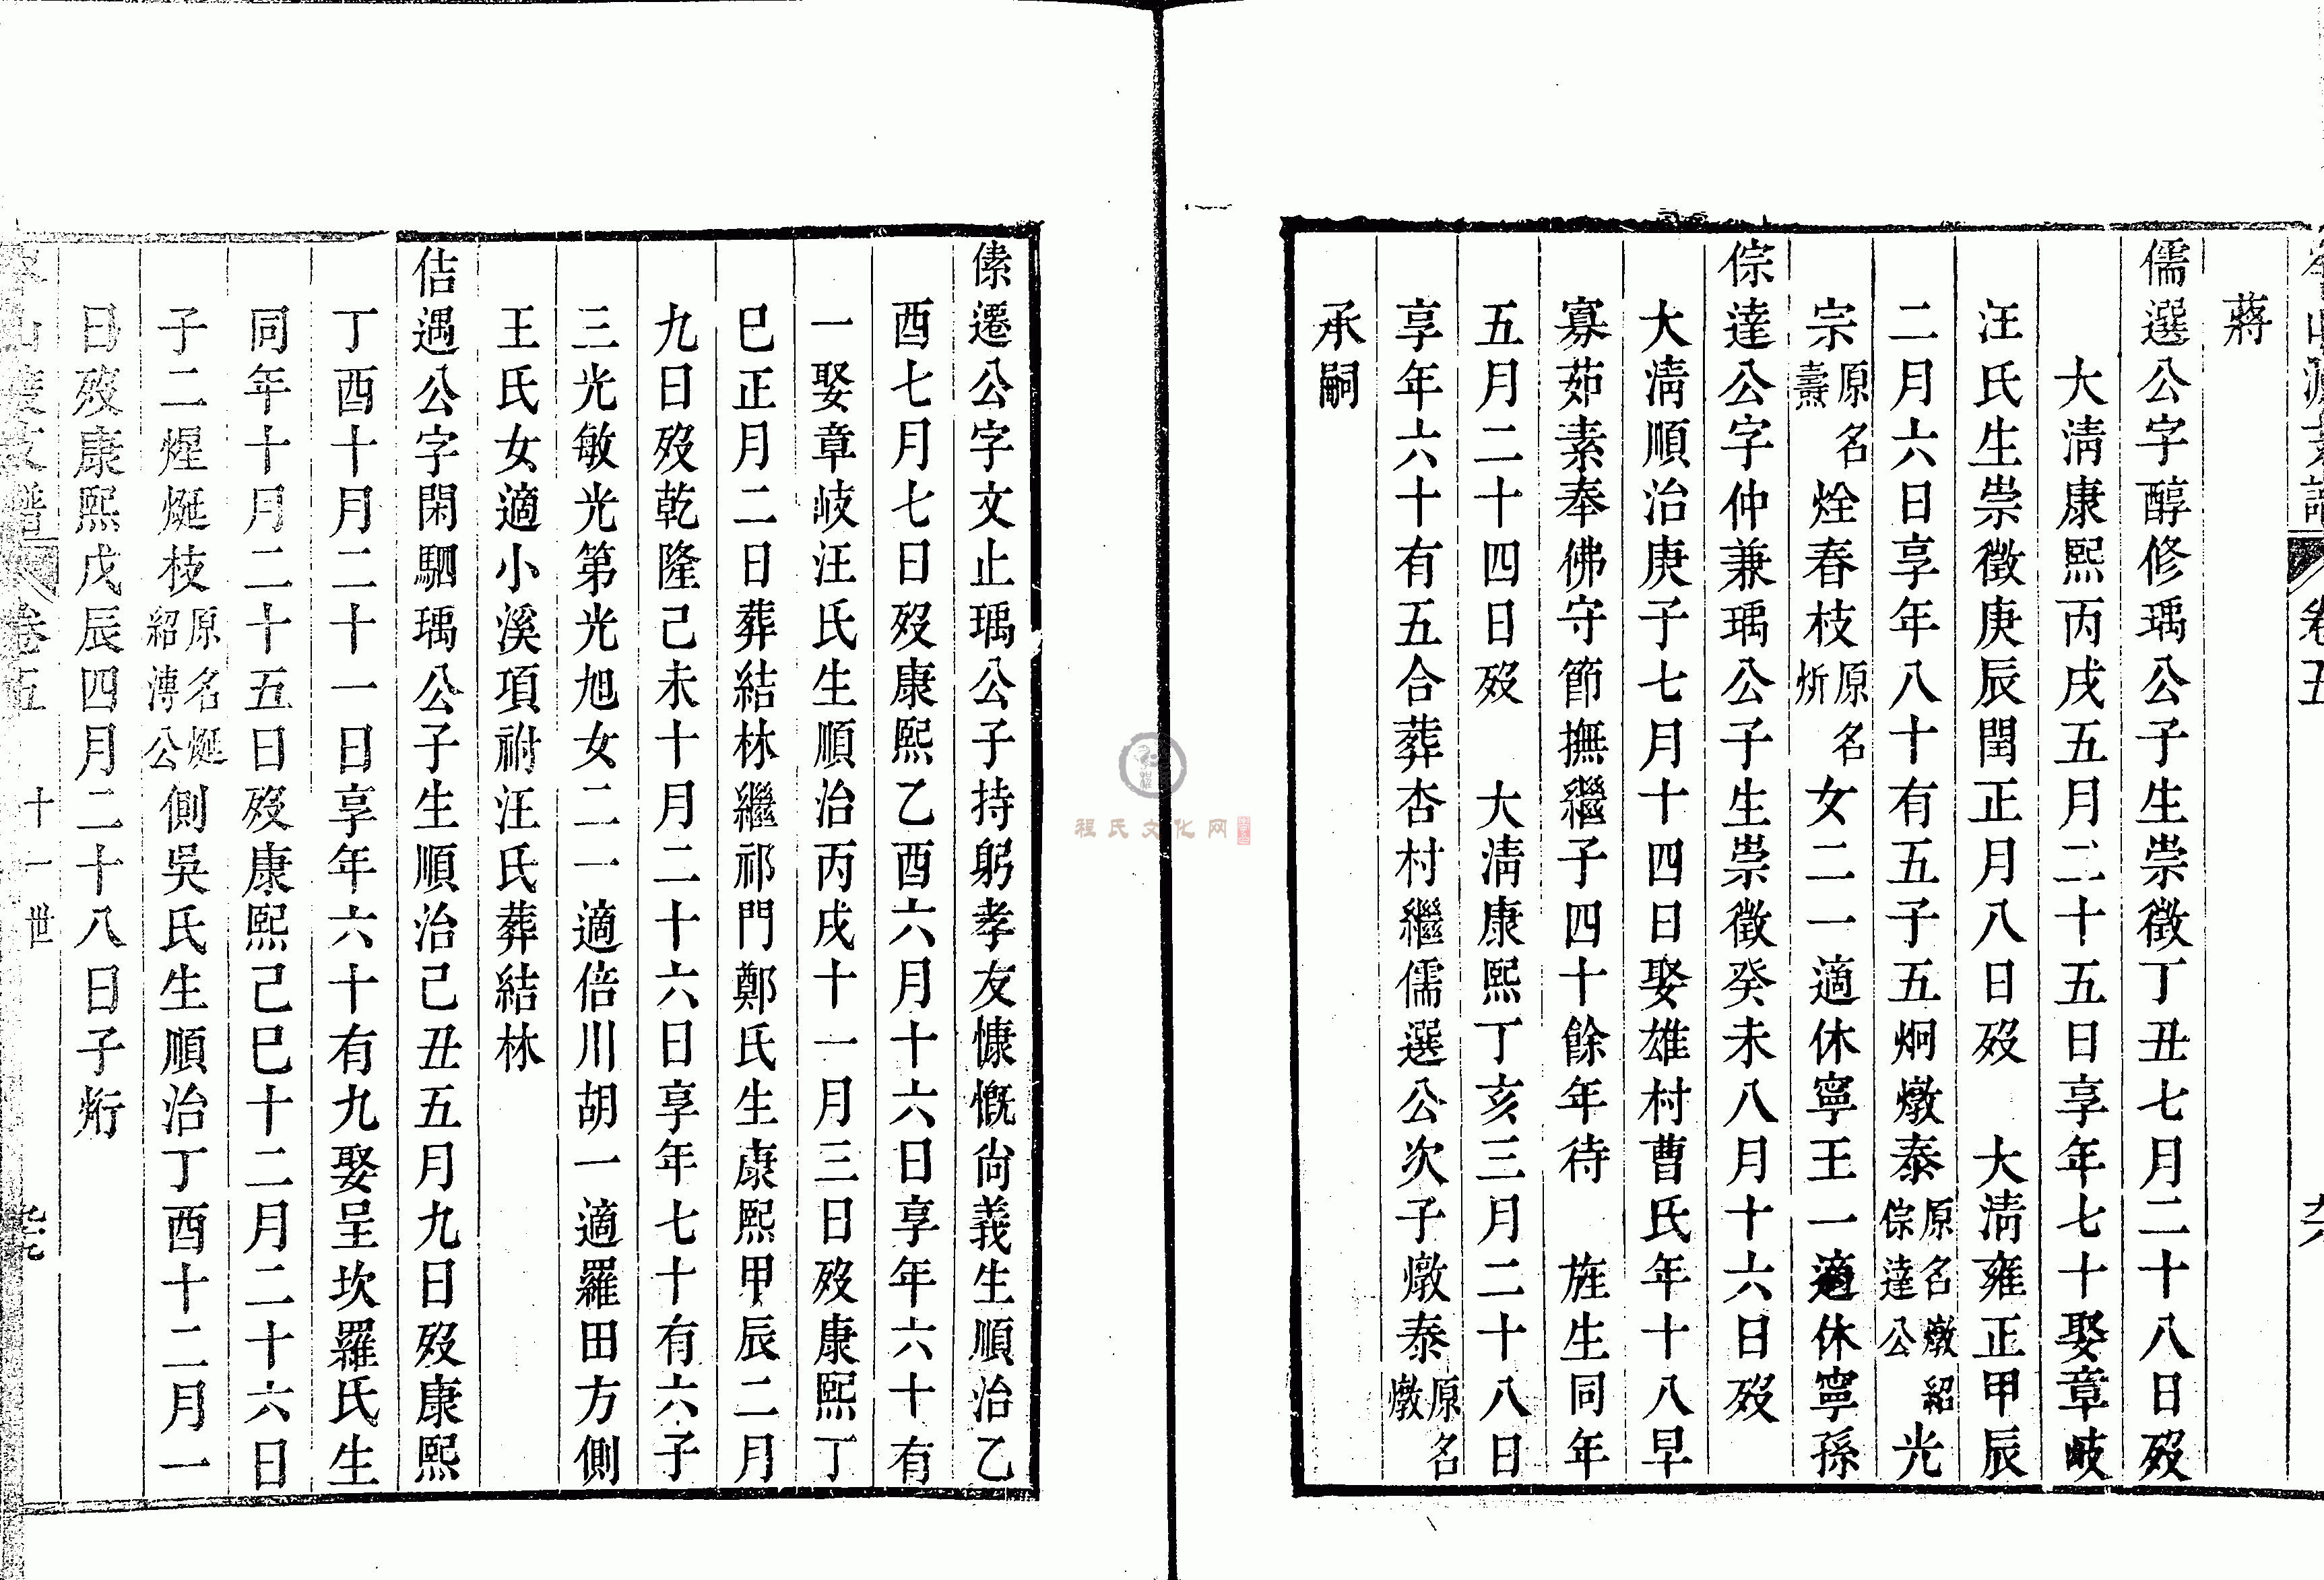 蔣
儒選公字醇修瑀公子生崇徵丁丑七月二十八日歿
大清康熙丙戌五月二十五日享年七十娶章岐
汪氏生崇徵庚辰閏正月八日歿　大清雍正甲辰
二月六日享年八十有五子五炯燉泰原名燉紹倧達公光
宗原名燾烇春枝原名炘女二一適休寧王一適休寧孫
倧達公字仲兼瑀公子生崇徵癸未八月十六日歿
大清順治庚子七月十四日娶雄村曹氏年十八早
寡茹素奉佛守節撫繼子四十餘年待　旌生同年
五月二十四日歿　大清康熙丁亥三月二十八日
享年六十有五合葬杏村繼儒選公次子燉泰原名燉
承嗣
傃遷公字文止瑀公子持躬孝友慷慨尙義生順治乙
酉七月七日歿康熙乙酉六月十六日享年六十有
一娶章岐汪氏生順治丙戌十一月三日歿康熙丁
巳正月二日葬結林繼祁門鄭氏生康熙甲辰二月
九日歿乾隆己未十月二十六日享年七十有六子
三光敏光第光旭女二一適倍川胡一適羅田方側
王氏女適小溪項祔汪氏葬結林
佶遇公字閑駟瑀公子生順治己丑五月九日歿康熙
丁酉十月二十一日享年六十有九娶呈坎羅氏生
同年十月二十五日歿康熙己巳十二月二十六日
子二煋烻枝原名烻紹漙公側吳氏生順治丁酉十二月一
日歿康熙戊辰四月二十八日子烆
卷五　十一世
程氏文化网